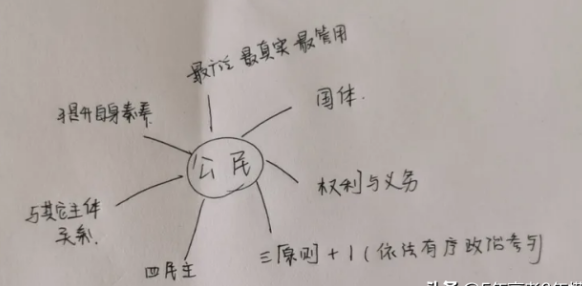 最广泛 最真实 最管用
国体.
提升自身素养
公民
权利与义务
与其它主体
关系.
三原则 + 1 (依法有序政治参与)
四民主